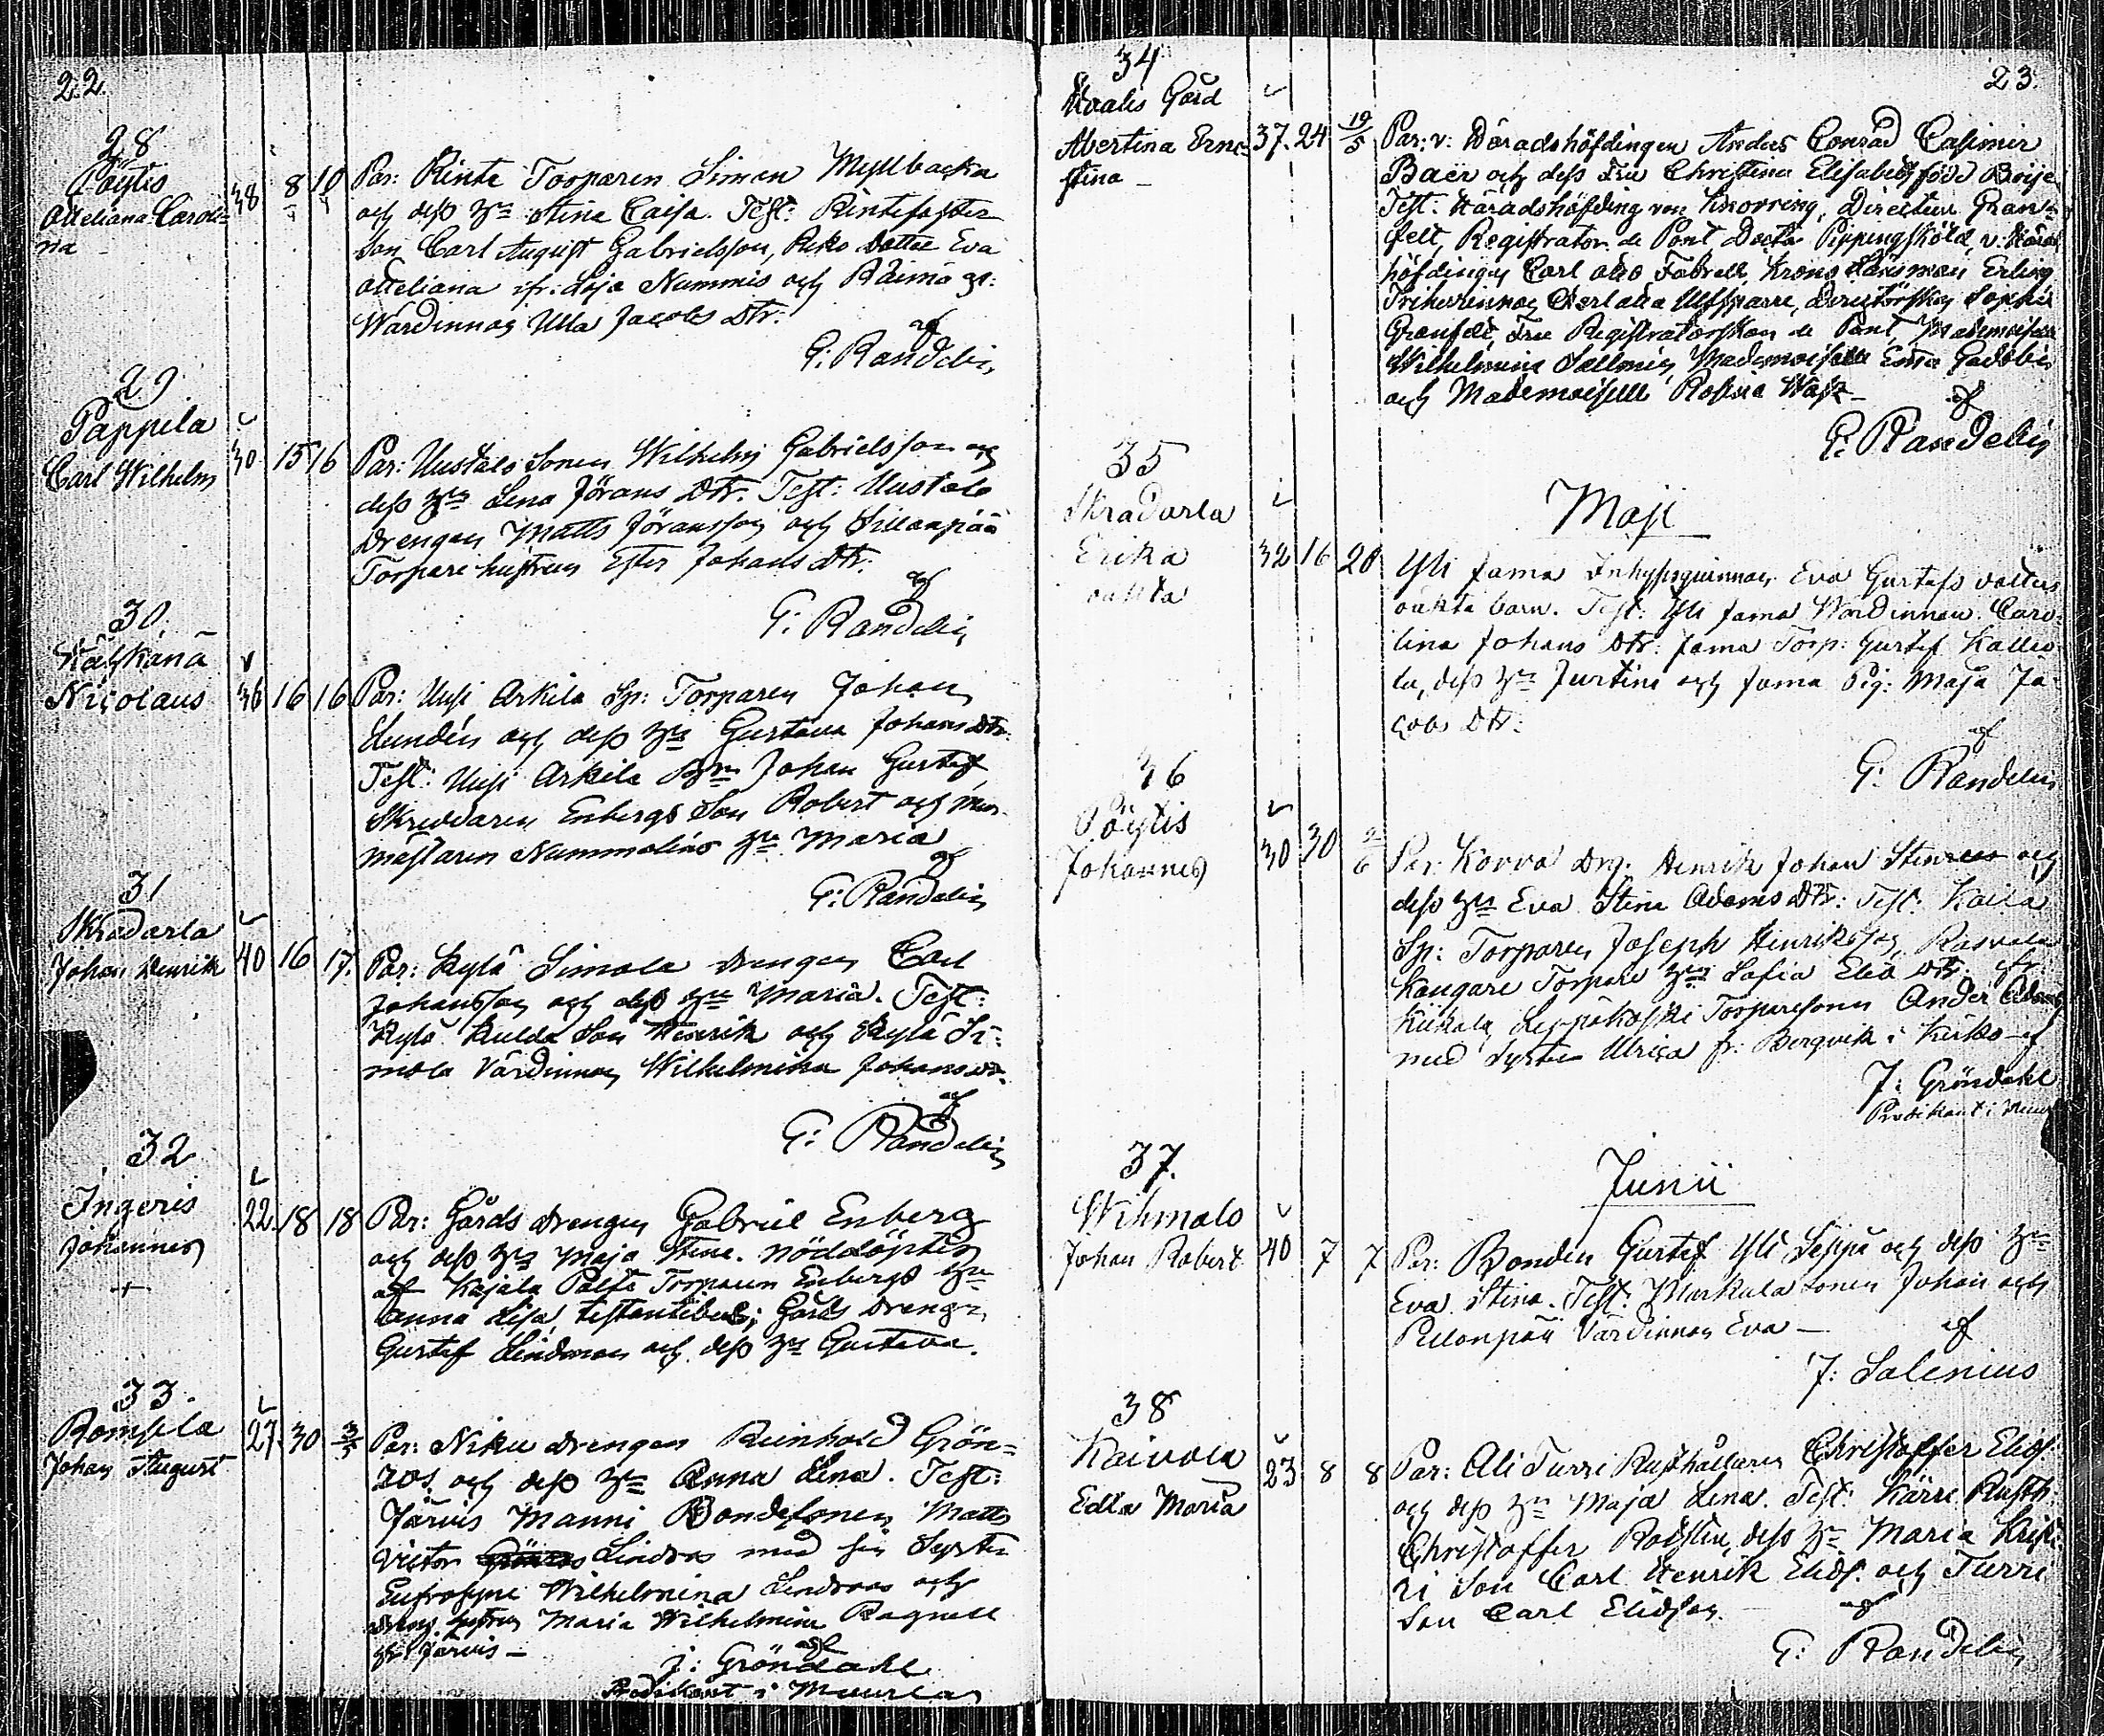 22.
28
Pöytis
Otteliana Caroli=
na
38 8 10 Par: Rinte Torparen Simon Myllbacka
och dess h:u Stina Caisa. Test:
Son Carl August Gabrielsson, dotter Eva
Otteliana Nummis och Raimo
Wärdinnan Ulla Jacobs dtr:
af
G: Randelin
29
Pappila
Carl Wilhelm
30 15 16 Par: Uustalo Sonen Wilhelm Gabrielsson och
dess h:u Lena Jörans dtr. Test: Uustalo
drengen Matts Jöransson och Sillanpää
Torpare hustrun Ester Johans dtr:
af
G: Randelin
30
Nicolaus
36 16 16 Par: Uusi Arkila Sp: Torparen Johan
Lundén och dess h:u Gustava Johans dtr:
Test: Uusi Arkila Johan Gustaf
Skreddaren Enbergs Son Robert och mur-
mästaren Nummelins h:u Maria
af
G: Randelin
31
Skradarla
Johan Henrik
40 16 17. Par: Kylä Simola drengen Carl
Johansson och dess h:u Maria. Test:
Kylä Kulda Son Henrik och Kylä Si=
mola Värdinnan Wilhelmina Johans dr.
af
G: Randelin
32
Ingeris
Johannes
+
22. 18 18 Par: Gårds drengen Gabriel Enberg
och dess h:u Maja Stina. nöddöpter
af Kajala Torparen Enbergs h:u
Anna Lisa, testantibus; Gårds drengn
Gustaf Lindman och dess h:u Gustava.
33.
Rompila
Johan August
27 30 3/5 Par: Niku drengen Reinhold Grön=
ros och dess h:u Anna Lena. Test:
Järvis Manni Bondesonen Matts
Victor Lindros med sin Syster
Eufrosyne Wilhelmina Lindroos och
dreng. hustrun Maria Wilhelmina Ragnell
fr: Järvis —
af
J: Gröndahl
Predikant i Muurla
23.
34
Gård
Albertina Erne-
stina —
37. 24 19/5 Par: v: Häradshöfdingen Anders Conrad Casimir
Baër och dess Fru Christina Elisabeth född Boije
Test: Häradshöfding von Knorring, Directeur Gran-
felt, Registrator de Pont, Doctor Pippingsköld, v: Härads
höfdingen Carl Otto Krono Länsman Erling
Friherinnan Ulfsparre, Directörskan Sophie
Granfelt, Fru Registratorskan de Pont, Mademoiselle
Wilhelmina Mademoiselle
och Mademoiselle
af
G: Randelin
Maji
35
Skradarla
Erika
oäkta
32 16 20 Yli Jama Inhyses quinnan Eva Gustafs dotters
oäkta barn. Test: Yli Jama Wärdinnan Caro-
lina Johans dtr: Jama Torp: Gustaf Kallio
la, dess h:u Justina och Jama Pig: Maja Ja-
cobs dtr:
af
G: Randelin
36
Pöytis
Johannes
30 30 2/6 Par: Korva drg. Henrik Johan och
dess h:u Eva Stina Adams dtr: Test:
Sp: Torparen Joseph Henriksson,
Kangare Torpare h:u Sofia Elia dtr. fr
Kiikala, Leppäkoski Torparesonen Ander
med Syster Ulrica fr: Bergvik i Kisko —
af
J: Gröndahl
Predikant i
Junii
37.
Wihmalo
Johan Robert
40 7 7 Par: Bonden Gustaf Yli Seppä och dess h:u
Eva Stina. Test: Murkala sonen Johan och
Värdinnan Eva —
af
J: Salenius
38
Kaivola
Edla Maria
23 8 8 Par: Ali Turri Rusthållaren Christoffer Elids:
och dess h:u Maja Lena. Test: Kärri Rusth:
Christoffer dess h:u Maria
Son Carl Henrik Elids: och Turri
Son Carl Elidsson.
af
G: Randelin